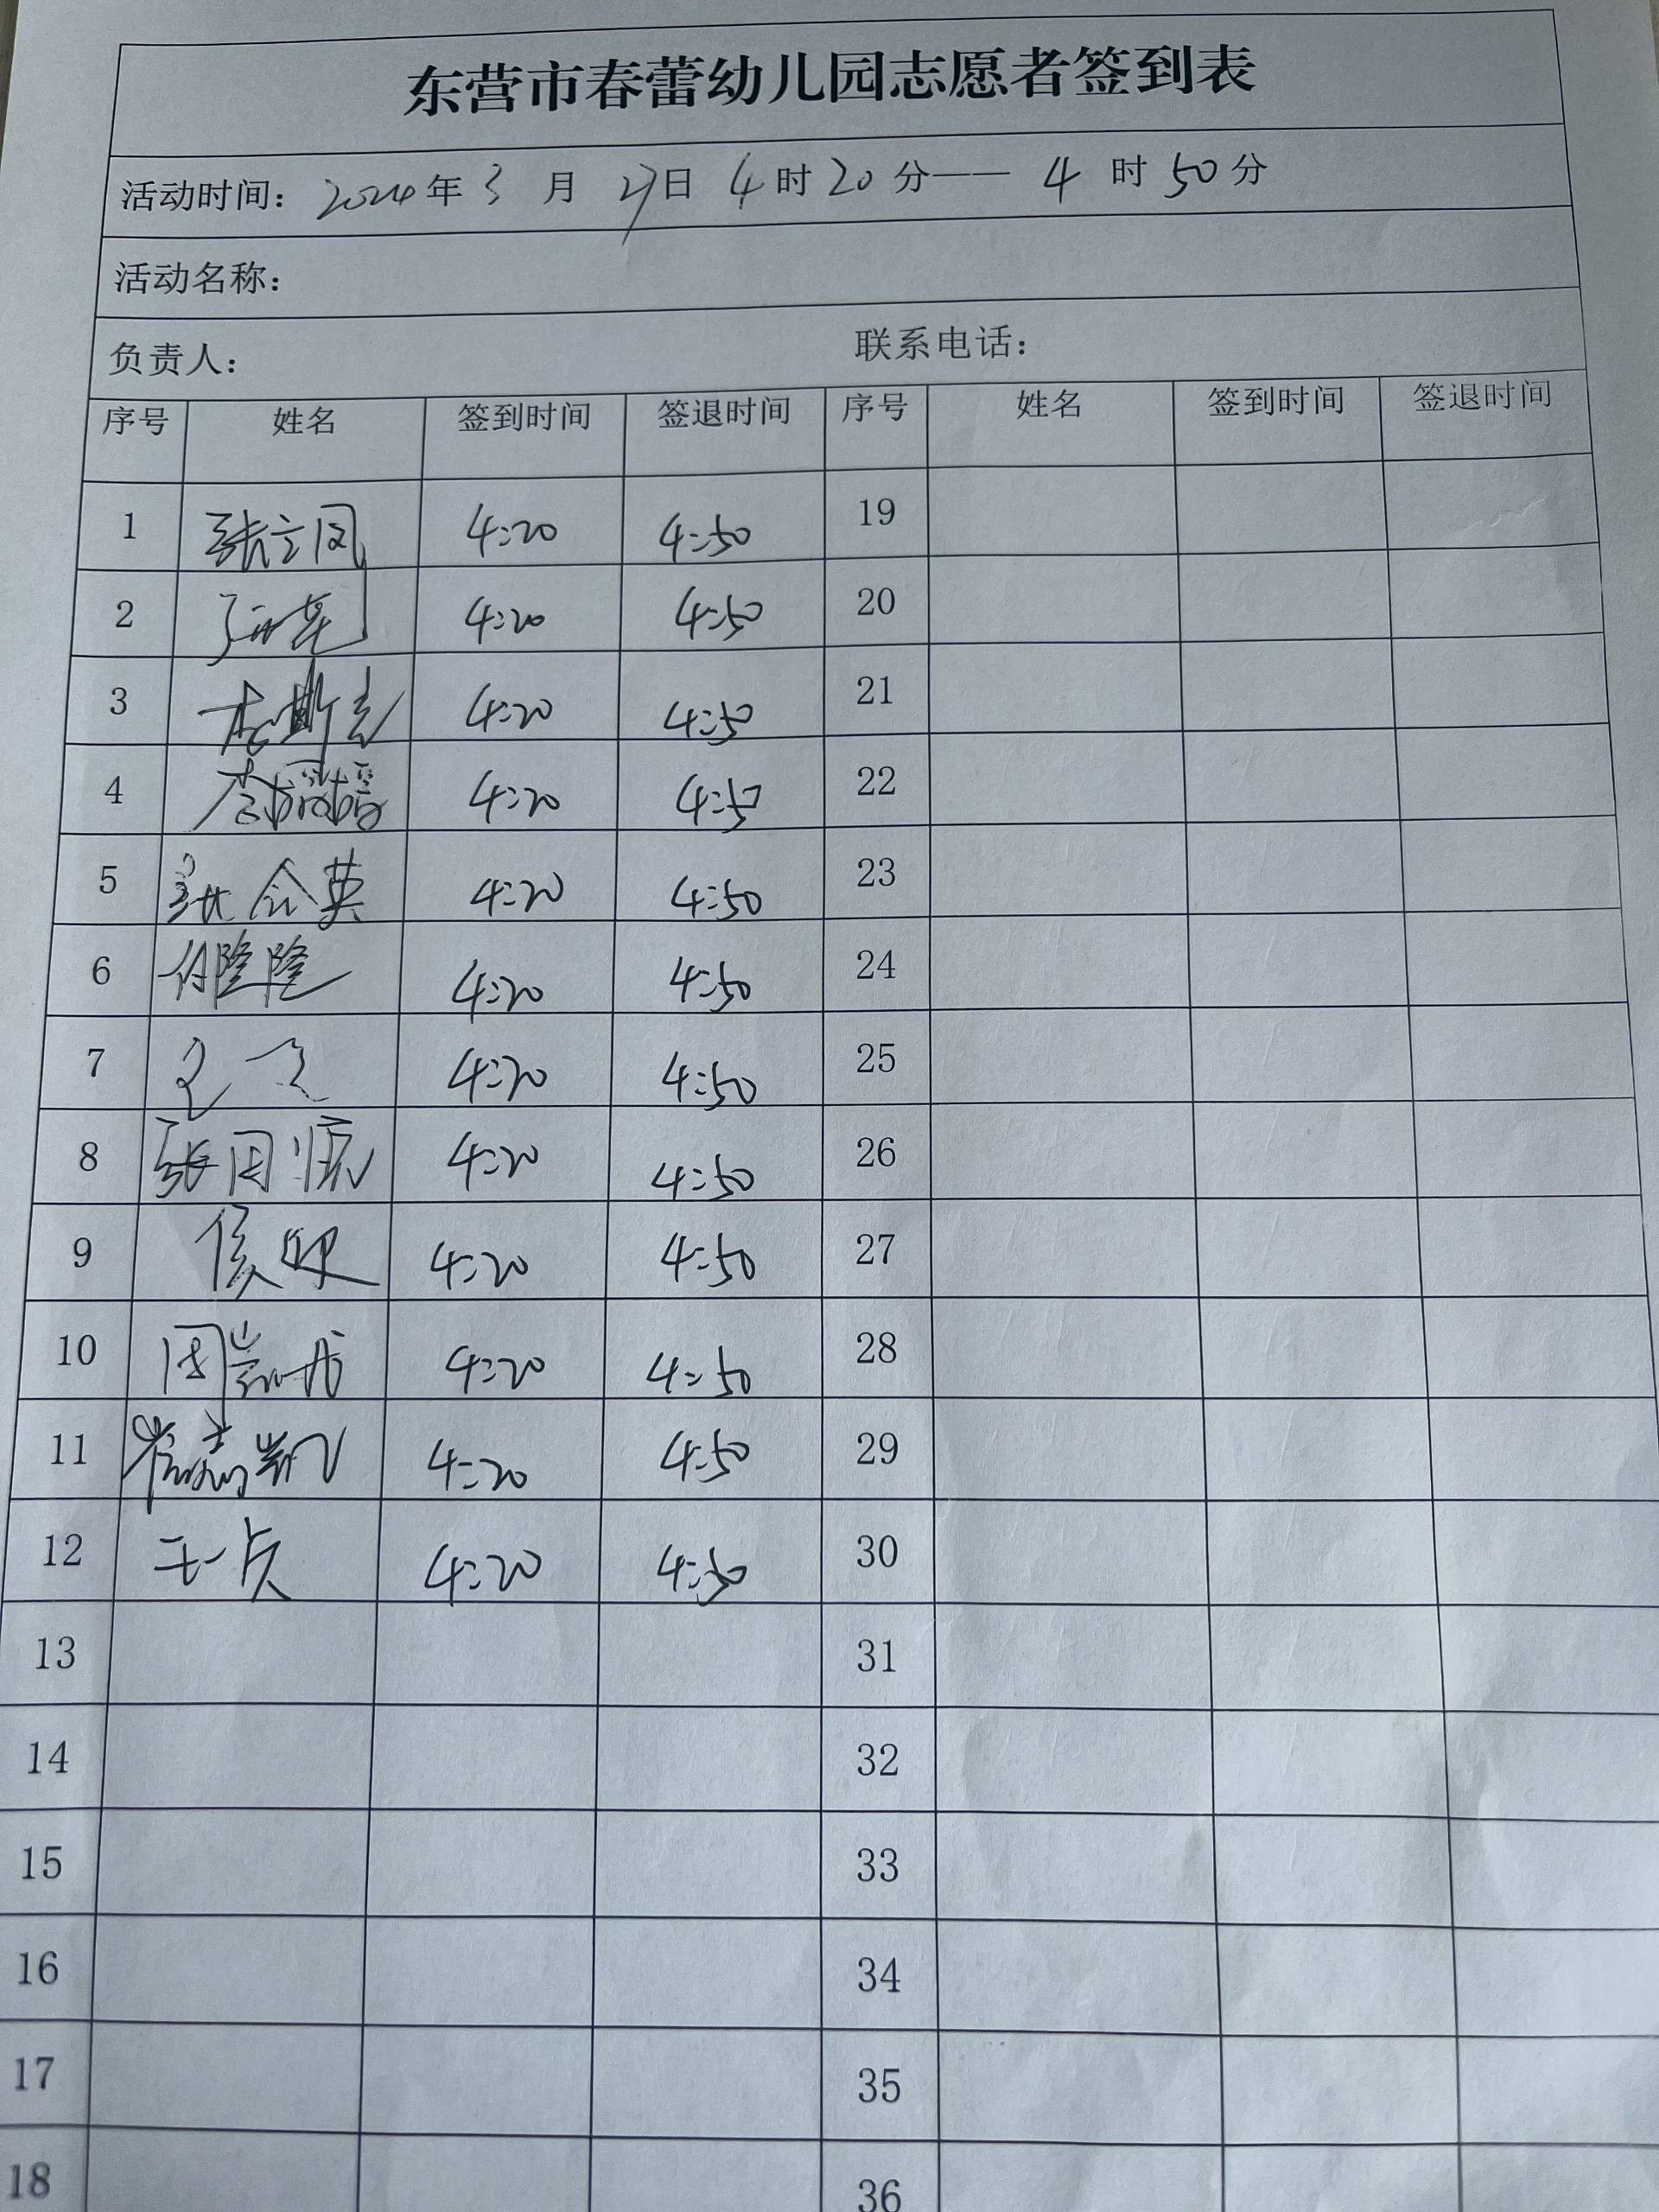 东营市春蕾幼儿园志愿者签到表
活动时间：2024年3月27日4时20分——4时50分
活动名称：
负责人： 联系电话：
序号 姓名 签到时间 签退时间 序号 姓名 签到时间 签退时间
1 张立凤 4:20 4:50 19
2 4:20 4:50 20
3 4:20 4:50 21
4 4:20 4:50 22
5 张会英 4:20 4:50 23
6 付隆隆 4:20 4:50 24
7 4:20 4:50 25
8 张国顺 4:20 4:50 26
9 4:20 4:50 27
10 4:20 4:50 28
11 崔志凯 4:20 4:50 29
12 4:20 4:50 30
13 31
14 32
15 33
16 34
17 35
18 36